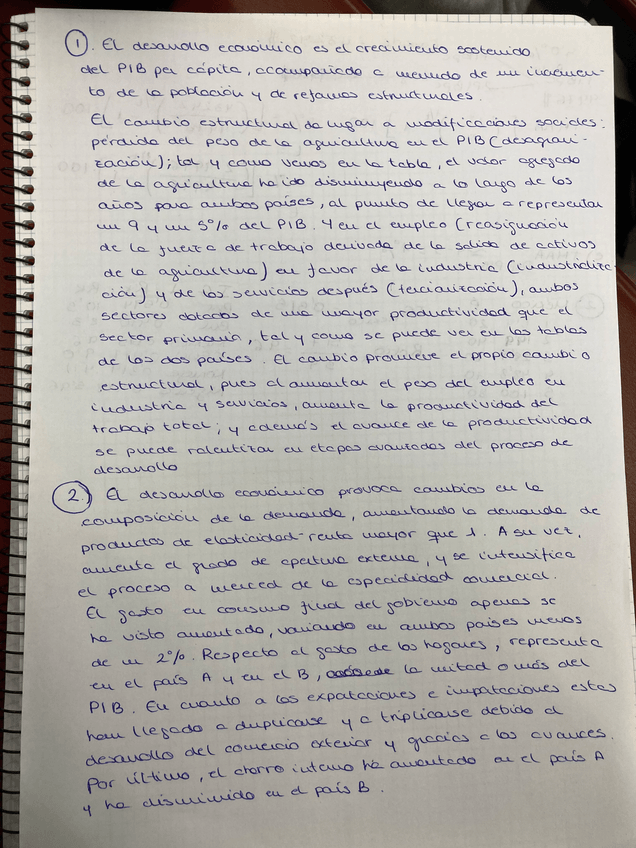 1. El desarrollo económico es el crecimiento sostenido
del PIB per cápita, acompañado a menudo de un incremen-
to de la población y de reformas estructurales.
El cambio estructural da lugar a modificaciones sociales:
pérdida del peso de la agricultura en el PIB (desagrari-
zación); tal y como vemos en la tabla, el valor agregado
de la agricultura ha ido disminuyendo a lo largo de los
años para ambos países, al punto de llegar a representar
un 9 y un 5% del PIB. Y en el empleo (reasignación
de la fuerza de trabajo derivada de la salida de activos
de la agricultura) en favor de la industria (industrializa-
ción) y de los servicios después (terciarización), ambos
sectores dotados de una mayor productividad que el
sector primario, tal y como se puede ver en las tablas
de los dos países. El cambio promueve el propio cambio
estructural, pues al aumentar el peso del empleo en
industria y servicios, aumenta la productividad del
trabajo total; y además el avance de la productividad
se puede ralentizar en etapas avanzadas del proceso de
desarrollo
2 El desarrollo económico provoca cambios en la
composición de la demanda, aumentando la demanda de
productos de elasticidad-renta mayor que 1. A su vez,
aumenta el grado de apertura externa, y se intensifica
el proceso a merced de la especialidad comercial.
El gasto en consumo final del gobierno apenas se
ha visto aumentado, variando en ambos países menos
de un 2%. Respecto al gasto de los hogares, representa
en el país A y en el B, la mitad o más del
PIB. En cuanto a las exportaciones e importaciones estas
han llegado a duplicarse y a triplicarse debido al
desarrollo del comercio exterior y gracias a los avances.
Por último, el ahorro interno ha aumentado en el país A
y ha disminuido en el país B.